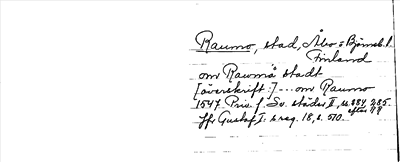 Raumo, stad, Åbo o Björneb. l.
Finland
om Rawmå stadt
[överskrift:] - om Raumo
1547 Priv. f. Sv. städer II, s. 284, 285.
efter
Jfr Gustaf I:s reg. 18, s. 510.